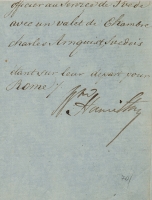 officier au Service de Suede
avec un valet de Chambre
Charles Suedois
étant sur leur depart pour
Rome
Wm Hamilton